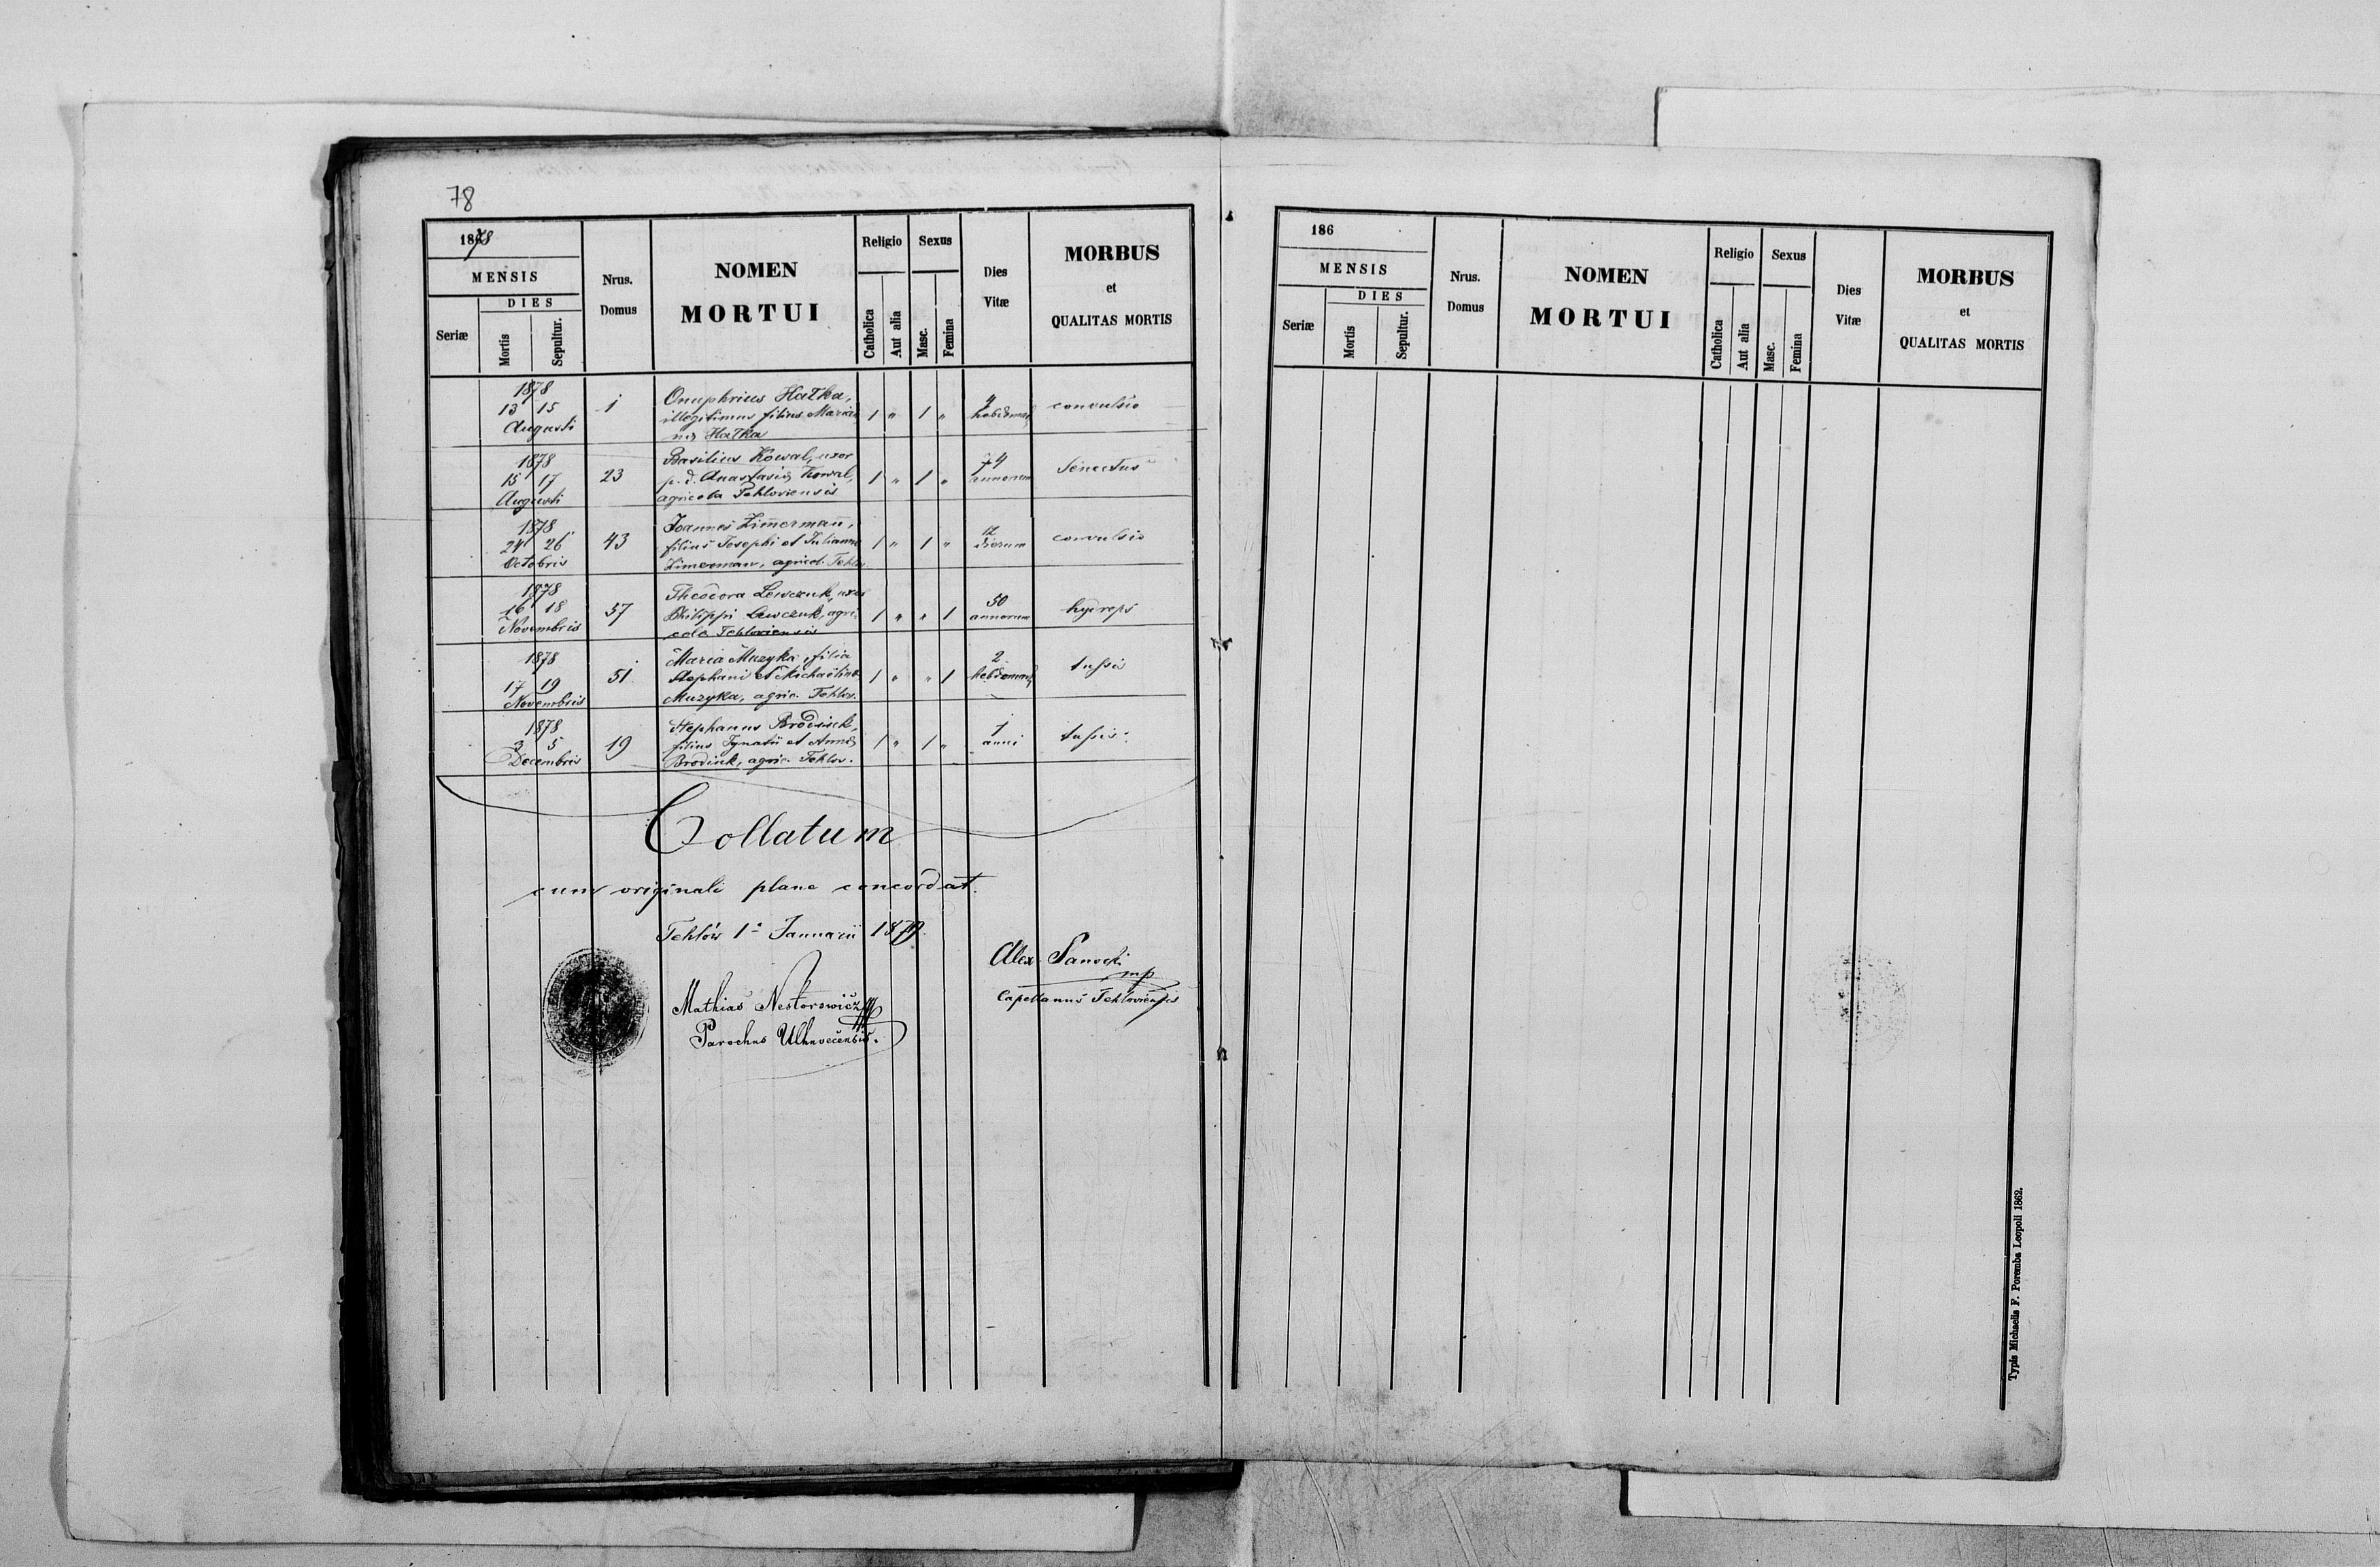 78
1878
MENSIS
DIES
Seriæ
Mortis
Sepultur.
Nrus.
Domus
NOMEN
MORTUI
Religio
Catholica
Aut alia
Sexus
Masc.
Femina
Dies
Vitæ
MORBUS
et
QUALITAS MORTIS
1878
13 15
Augusti
1
Onuphrius Hałka,
illegitimus filius Marian
næ Hałka
1 " 1 "
hebdomad
convulsio
1878
15 17
Augusti
23
Basilius Kowal, uxor
p. d. Anastasiæ Kowal,
agricola Tehloviensis
1 " 1 "
74
annorum
Senectus
1878
24 26
Octobris
43
Joannes Zimermann,
filius Josephi et Julianna
Zimerman, agricol. Tehlov
1 " 1 "
12
dierum
convulsio
1878
16 18
Novembris
57
Theodora Lewczuk, uxor
Philippi Lewczuk, agri
cola Tehloviensis
1 " " 1
50
annorum
hydrops
1878
17 19
Novembris
51
Maria Muzyka, filia
Stephani et Michaelina
Muzyka, agric. Tehlov.
1 " " 1
2
hebdomad
tussis
1878
3 5
Decembris
19
Stephanus Brodiuk,
filius Ignatii et Annæ
Brodiuk, agric. Tehlov.
1 " 1 "
1
anni
tussis
Collatum
cum originali plane concordat.
Tehlów 1a Januarii 1879.
Alex. Sanocki
mp
Capellanus Tehloviensis
Mathias Nestorowicz
Parochus Uhnovecensis.
186
MENSIS
DIES
Seriæ
Mortis
Sepultur.
Nrus.
Domus
NOMEN
MORTUI
Religio
Catholica
Aut alia
Sexus
Masc.
Femina
Dies
Vitæ
MORBUS
et
QUALITAS MORTIS
Typis Michaelis F. Poremba Leopoli 1862.